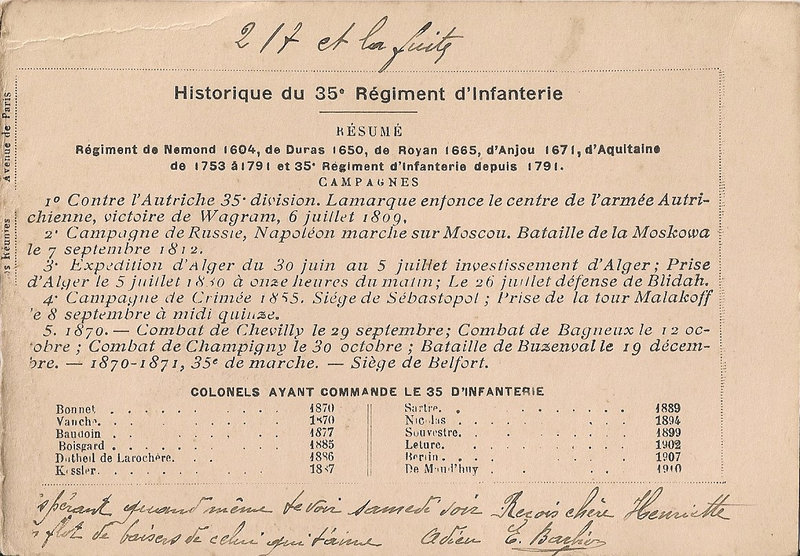 217 et la fuite
Historique du 35e Régiment d'Infanterie
RÉSUMÉ
Régiment de Nemond 1604, de Duras 1650, de Royan 1665, d'Anjou 1671, d'Aquitaine
de 1753 à 1791 et 35e Régiment d'Infanterie depuis 1791.
CAMPAGNES
1o Contre l'Autriche 35e division. Lamarque enfonce le centre de l'armée Autri-
chienne, victoire de Wagram, 6 juillet 1809.
2e Campagne de Russie, Napoléon marche sur Moscou. Bataille de la Moskowa
le 7 septembre 1812.
3e Expédition d'Alger du 30 juin au 5 juillet investissement d'Alger; Prise
d'Alger le 5 juillet 1830 à onze heures du matin; Le 26 juillet défense de Blidah.
4e Campagne de Crimée 1855. Siége de Sébastopol; Prise de la tour Malakoff
le 8 septembre à midi quinze.
5. 1870. — Combat de Chevilly le 29 septembre; Combat de Bagneux le 12 oc-
obre; Combat de Champigny le 30 octobre; Bataille de Buzenval le 19 décem-
bre. — 1870-1871, 35e de marche. — Siège de Belfort.
COLONELS AYANT COMMANDE LE 35 D'INFANTERIE
Bonnet 1870
Vanche 1870
Baudoin 1877
Boisgard 1885
Dutheil de Larochère. 1886
Kessler. 1887
Sartre. 1889
Nicolas 1894
Souvestre. 1899
Leture. 1902
Berdin. 1907
De Maud'huy 1910
Avenue de Paris
es Réunves
spérant quand même te voir samedi soir Reçois chère Henriette
flot de baisers de celui qui t'aime Adieu E.